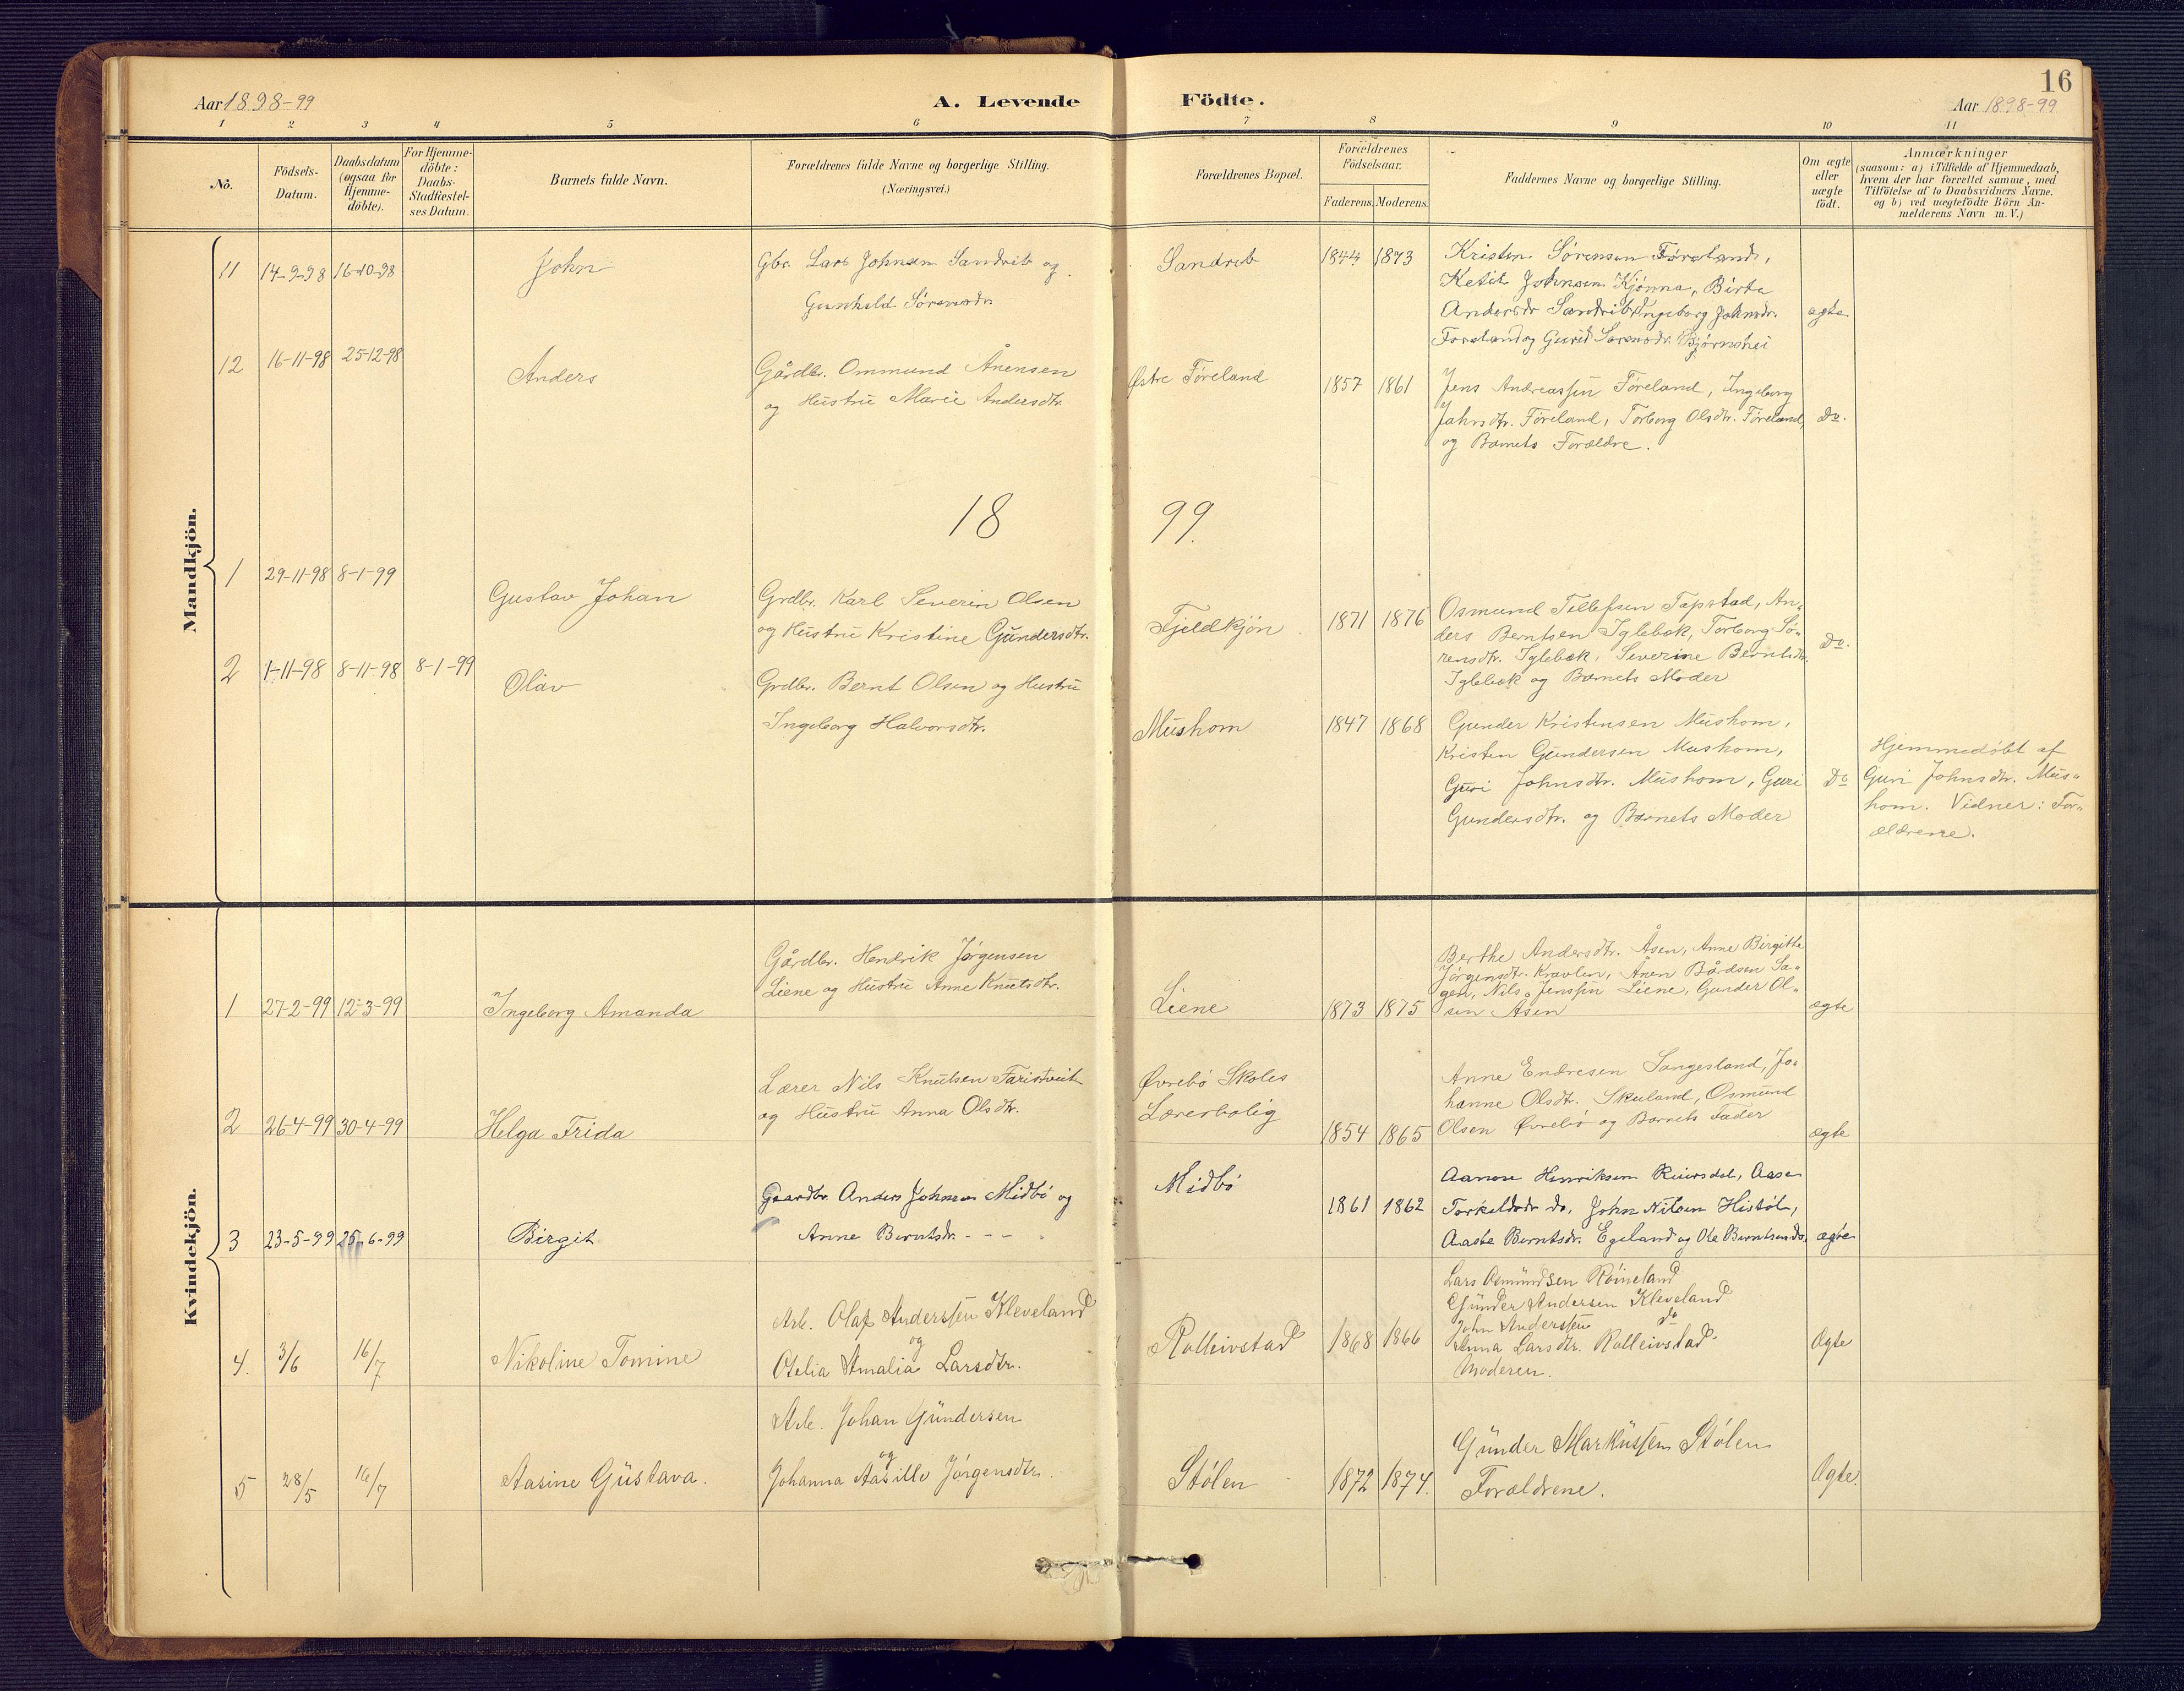 16
Aar 1898-99
A. Levende Födte.
Aar 1898-99
1 2 3 4 5 6 7 8 9 10 11
No.
Födsels-Datum.
Daabsdatum (ogsaa for Hjemme-döbte).
For Hjemme-döbte: Daabs-Stadfæstel-ses Datum.
Barnets fulde Navn.
Forældrenes fulde Navne og borgerlige Stilling.
(Næringsvei.)
Forældrenes Bopæl.
Forældrenes Födselsaar.
Faderens. Moderens.
Faddernes Navne og borgerlige Stilling.
Om ægte eller uægte födt.
Anmærkninger
(saasom: a) i Tilfælde af Hjemmedaab,
hvem der har forrettet samme, med
Tilföielse af to Daabsvidners Navne.
og b) ved uægtefödte Börn An-
melderens Navn m. V.)
Mandkjön.
11 14-9-98 16-10-98 John
Gbr. Lars Johnsen Sandrib og
Gunhild Sørensdr.
Sandrib 1844 1873
Kristen Sørensen Føreland,
Ketil Johnsen Kjønna, Birte
Andersdr Sandrib, Ingeborg Johnsdr.
Foreland og Gurid Sørensdr. Bjørnshei
ægte
12 16-11-98 25-12-98 Anders
Gårdbr. Ommund Ånensen
og Hustru Marie Andersdtr.
Østre Føreland 1857 1861
Jens Andreassen Føreland, Ingeborg
Jahnsdtr. Føreland, Torborg Olsdtr. Føreland,
og Barnets Forældre.
Do.
18 99.
1 29-11-98 8-1-99 Gustav Johan
Grdbr. Karl Severin Olsen
og Hustru Kristine Gundersdtr.
Fjeldkjön 1871 1876
Osmund Tellefsen Tapstad, An-
ders Berntsen Iglebæk, Torborg Sø-
rensdtr. Iglebæk, Severine Berntsdtr.
Iglebæk og Barnets Moder
Do.
2 1-11-98 8-11-98 8-1-99 Olav
Grdbr. Bernt Olsen og Hustru
Ingeborg Halvorsdtr.
Mushom 1847 1868
Gunder Kristensen Mushom,
Kristen Gundersen Mushom,
Guri Johnsdtr. Mushom, Guri
Gundersdtr. og Barnets Moder
Do
Hjemmedøbt af
Guri Johnsdtr. Mus-
hom. Vidner: For-
ældrene.
Kvindekjön.
1 27-2-99 12-3-99 Ingeborg Amanda
Gårdbr. Hendrik Jørgensen
Liene og Hustru Anne Knutsdtr.
Liene 1873 1875
Berthe Andersdtr. Åsen, Anne Birgitte
Jørgensdtr. Kravlen, Ånen Bårdsen Sa-
gen, Nils Jenssen Liene, Gunder Ol-
sen Åsen
ægte
2 26-4-99 30-4-99 Helga Frida
Lærer Nils Knutsen Faristveit
og Hustru Anna Olsdtr.
Øvrebø Skoles
Lærerbolig
1854 1865
Anne Endresen Sangesland, Jo-
hanne Olsdtr. Skuland, Osmund
Olsen Øvrebø og Barnets Fader
ægte
3 23-5-99 25-6-99 Birgit
Gaardbr. Anders Johnsen Midbö og
Anne Berntsdr. - - -
Midbö 1861 1862
Aanon Henriksen Reiersdal, Aase
Torkeldsdr do, John Nilsen Histøl,
Aaste Berntsdr. Egeland og Ole Berntsen do,
ægte
4. 3/6 16/7 Nikoline Tomine
Arb. Olaf Anderssen Kleveland
og
Otelia Amalia Larsdtr.
Rolleivstad 1868 1866
Lars Osmundsen Röineland
Gunder Andersen Kleveland
John Anderssen do
Anna Larsdtr. Rolleivstad
Moderen.
Ægte
5 28/5 16/7 Aasine Gustava.
Arb. Johan Gundersen
og
Johanna Aasille Jörgensdtr.
Stølen 1872 1874.
Gunder Markussen Stølen
Forældrene.
Ægte.